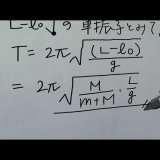 L-l₀」の単振子とみて
T = 2π√((L-l₀)/g)
= 2π√(M/(m+M)・L/g)